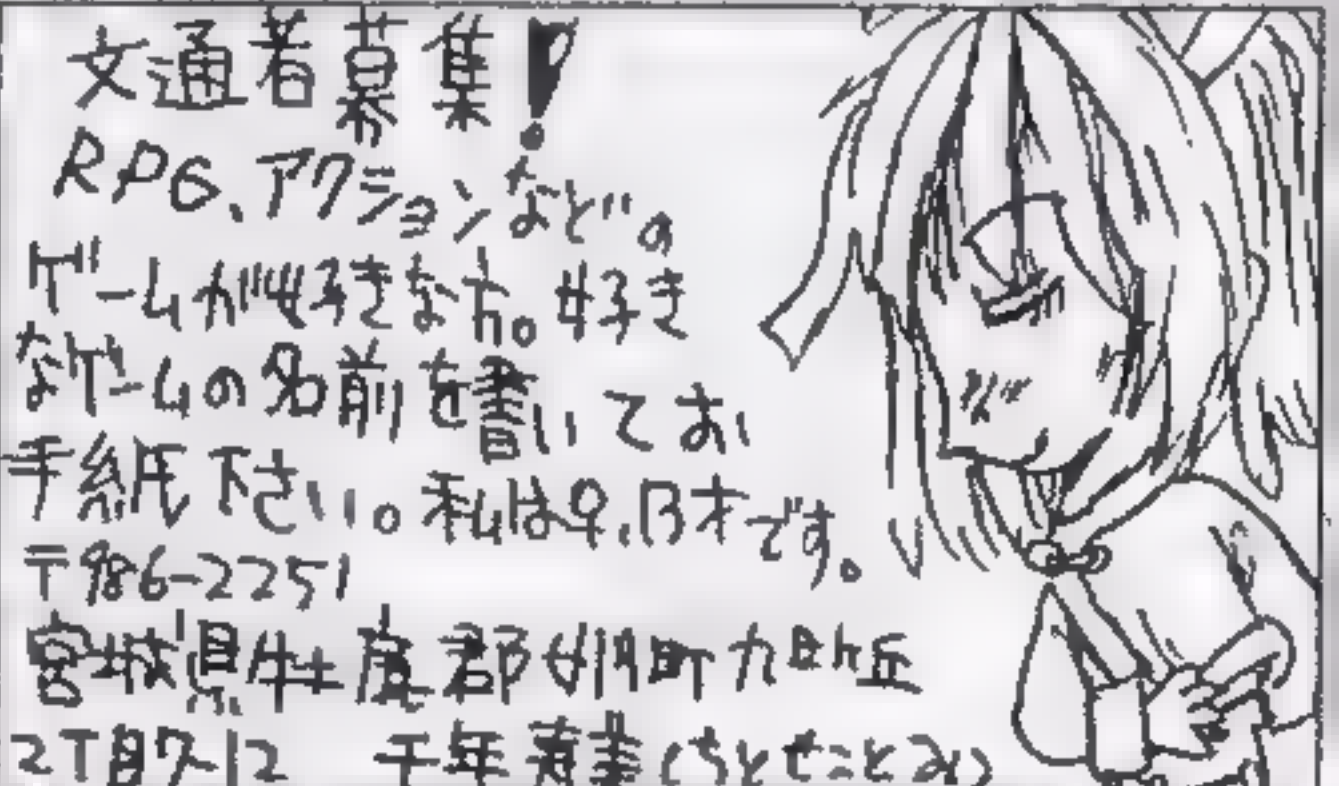 文通者募集!
RPG、アクションなどの
ゲームが好きな方。好き
なゲームの名前を書いてお
手紙下さい。私は♀、13才です。
〒986-2251
宮城県牡鹿郡女川町旭が丘
2丁目7-12 千年 (ちとせことみ)